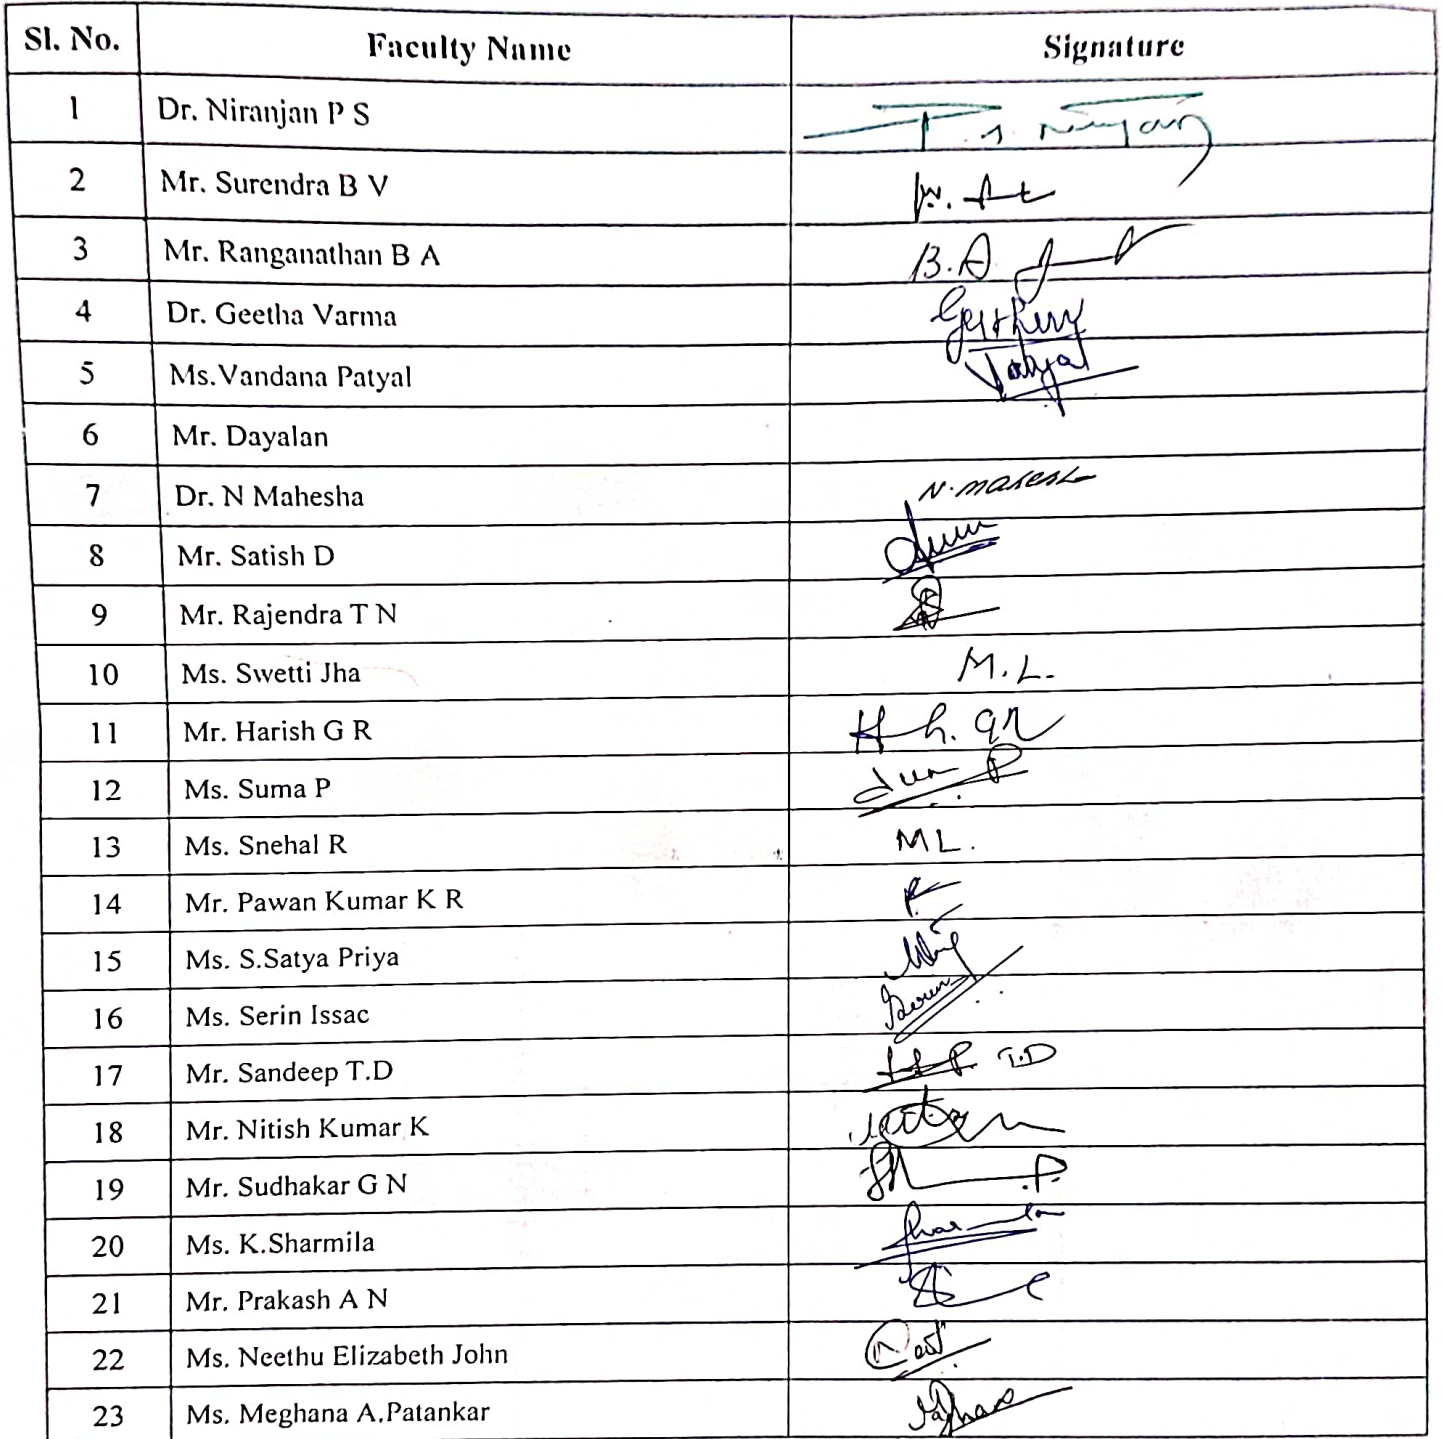 Sl. No. Faculty Name Signature
1 Dr. Niranjan P S P. S. Niranjan
2 Mr. Surendra B V
3 Mr. Ranganathan B A B.A
4 Dr. Geetha Varma
5 Ms.Vandana Patyal Patyal
6 Mr. Dayalan
7 Dr. N Mahesha N. Mahesh
8 Mr. Satish D
9 Mr. Rajendra T N
10 Ms. Swetti Jha M.L.
11 Mr. Harish G R H h. GR
12 Ms. Suma P
13 Ms. Snehal R ML.
14 Mr. Pawan Kumar K R
15 Ms. S.Satya Priya
16 Ms. Serin Issac
17 Mr. Sandeep T.D T.D
18 Mr. Nitish Kumar K
19 Mr. Sudhakar G N
20 Ms. K.Sharmila
21 Mr. Prakash A N
22 Ms. Neethu Elizabeth John
23 Ms. Meghana A.Patankar